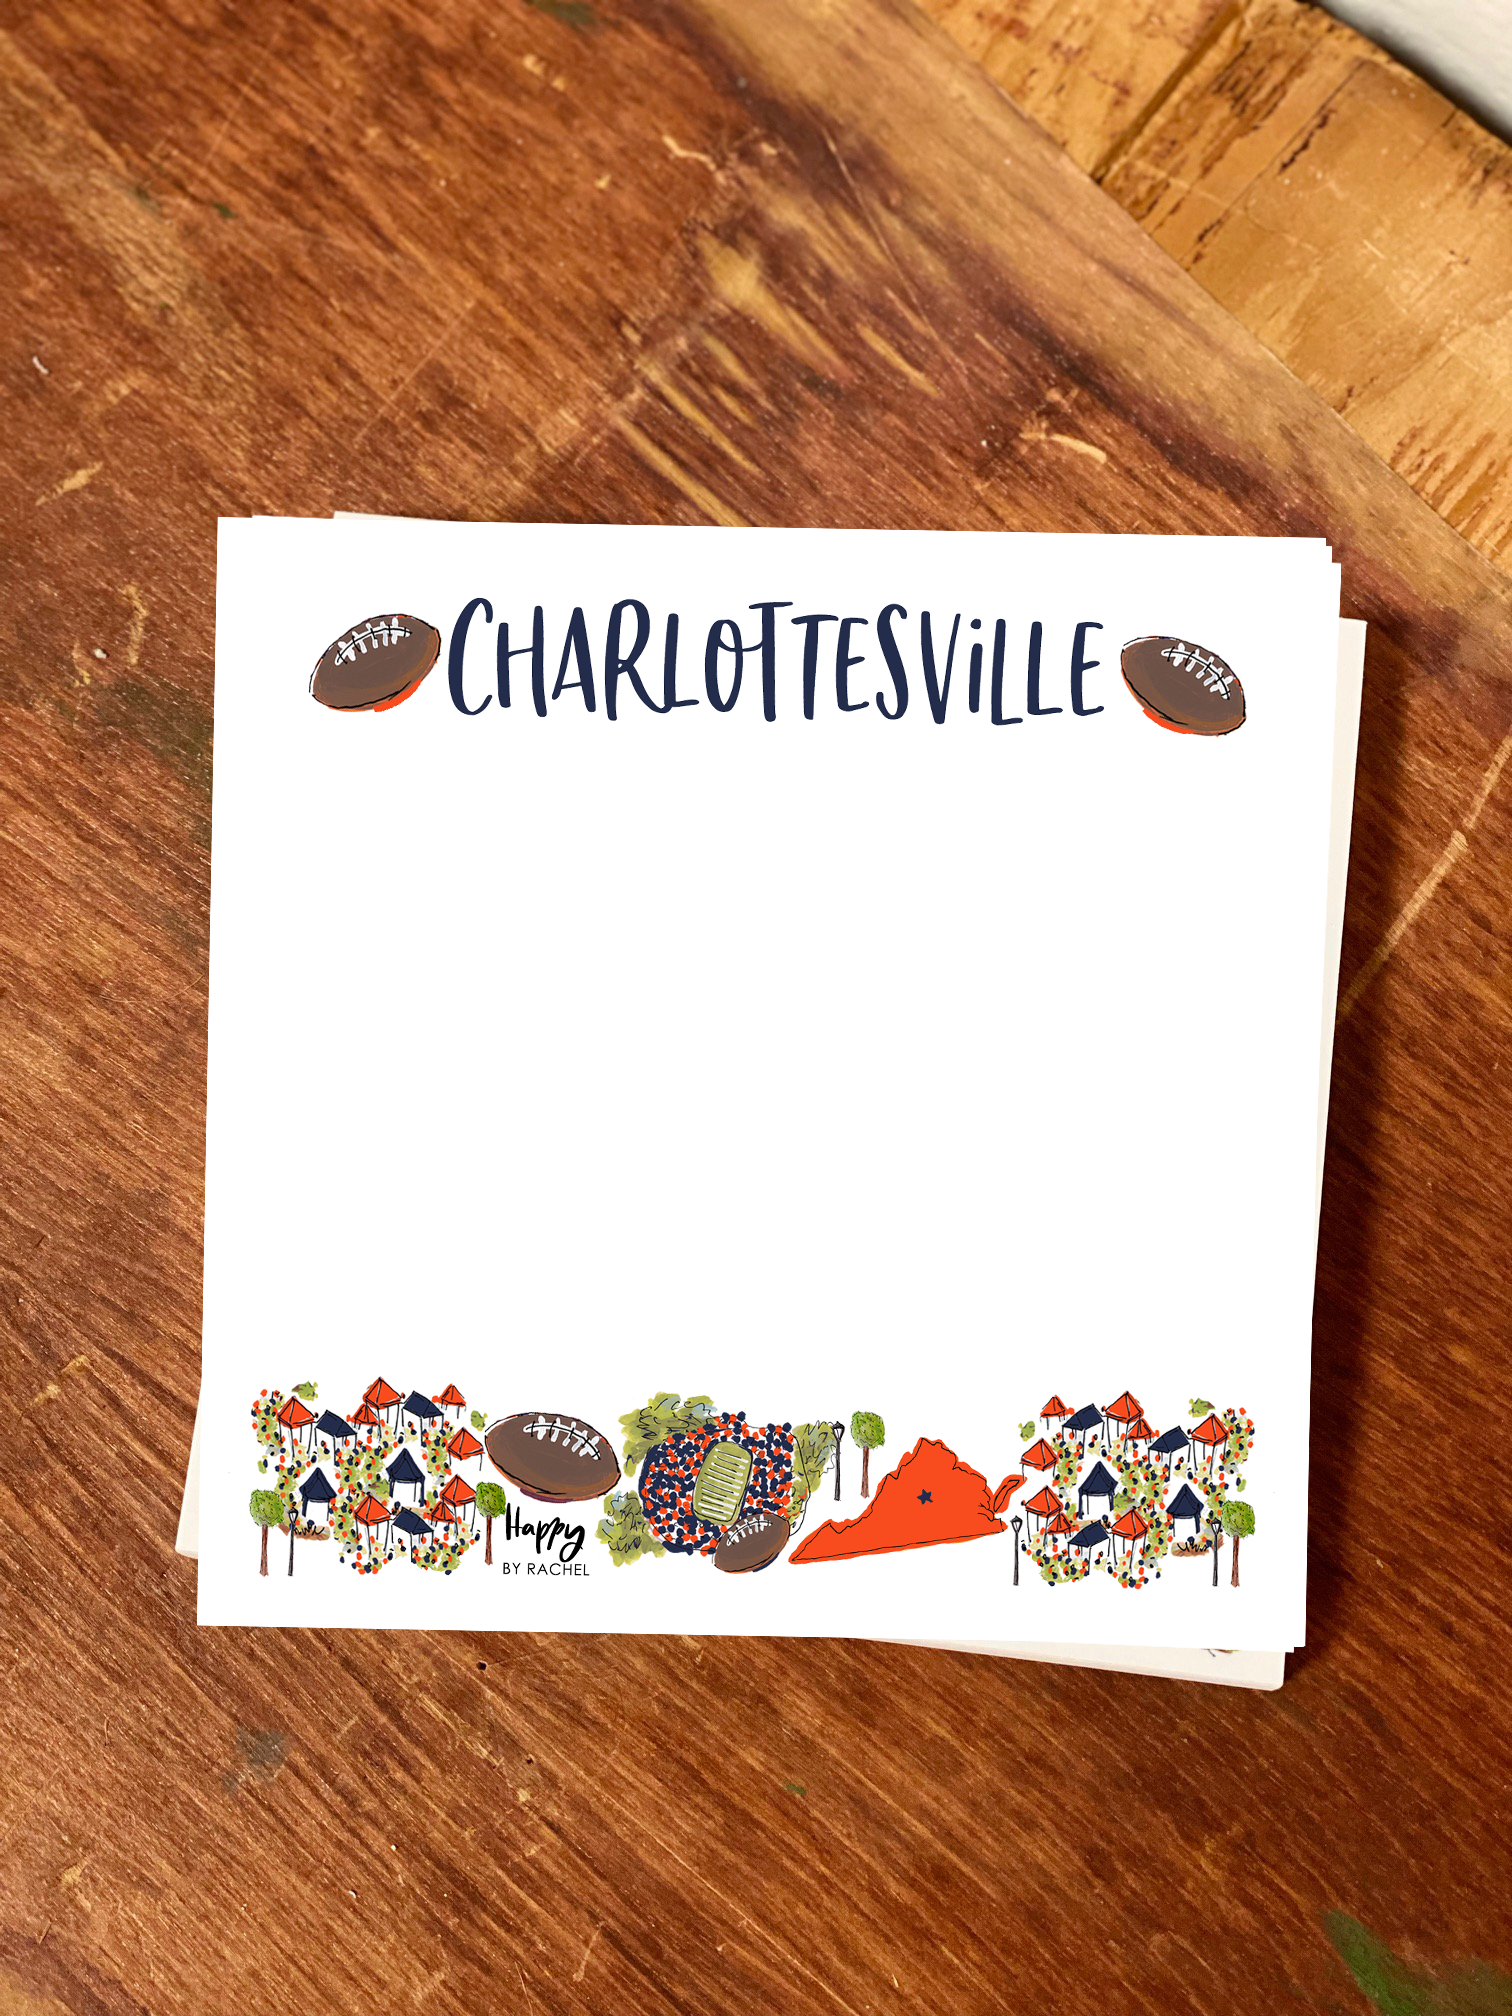 CHARLOTTESViLLE
Happy
BY RACHEL